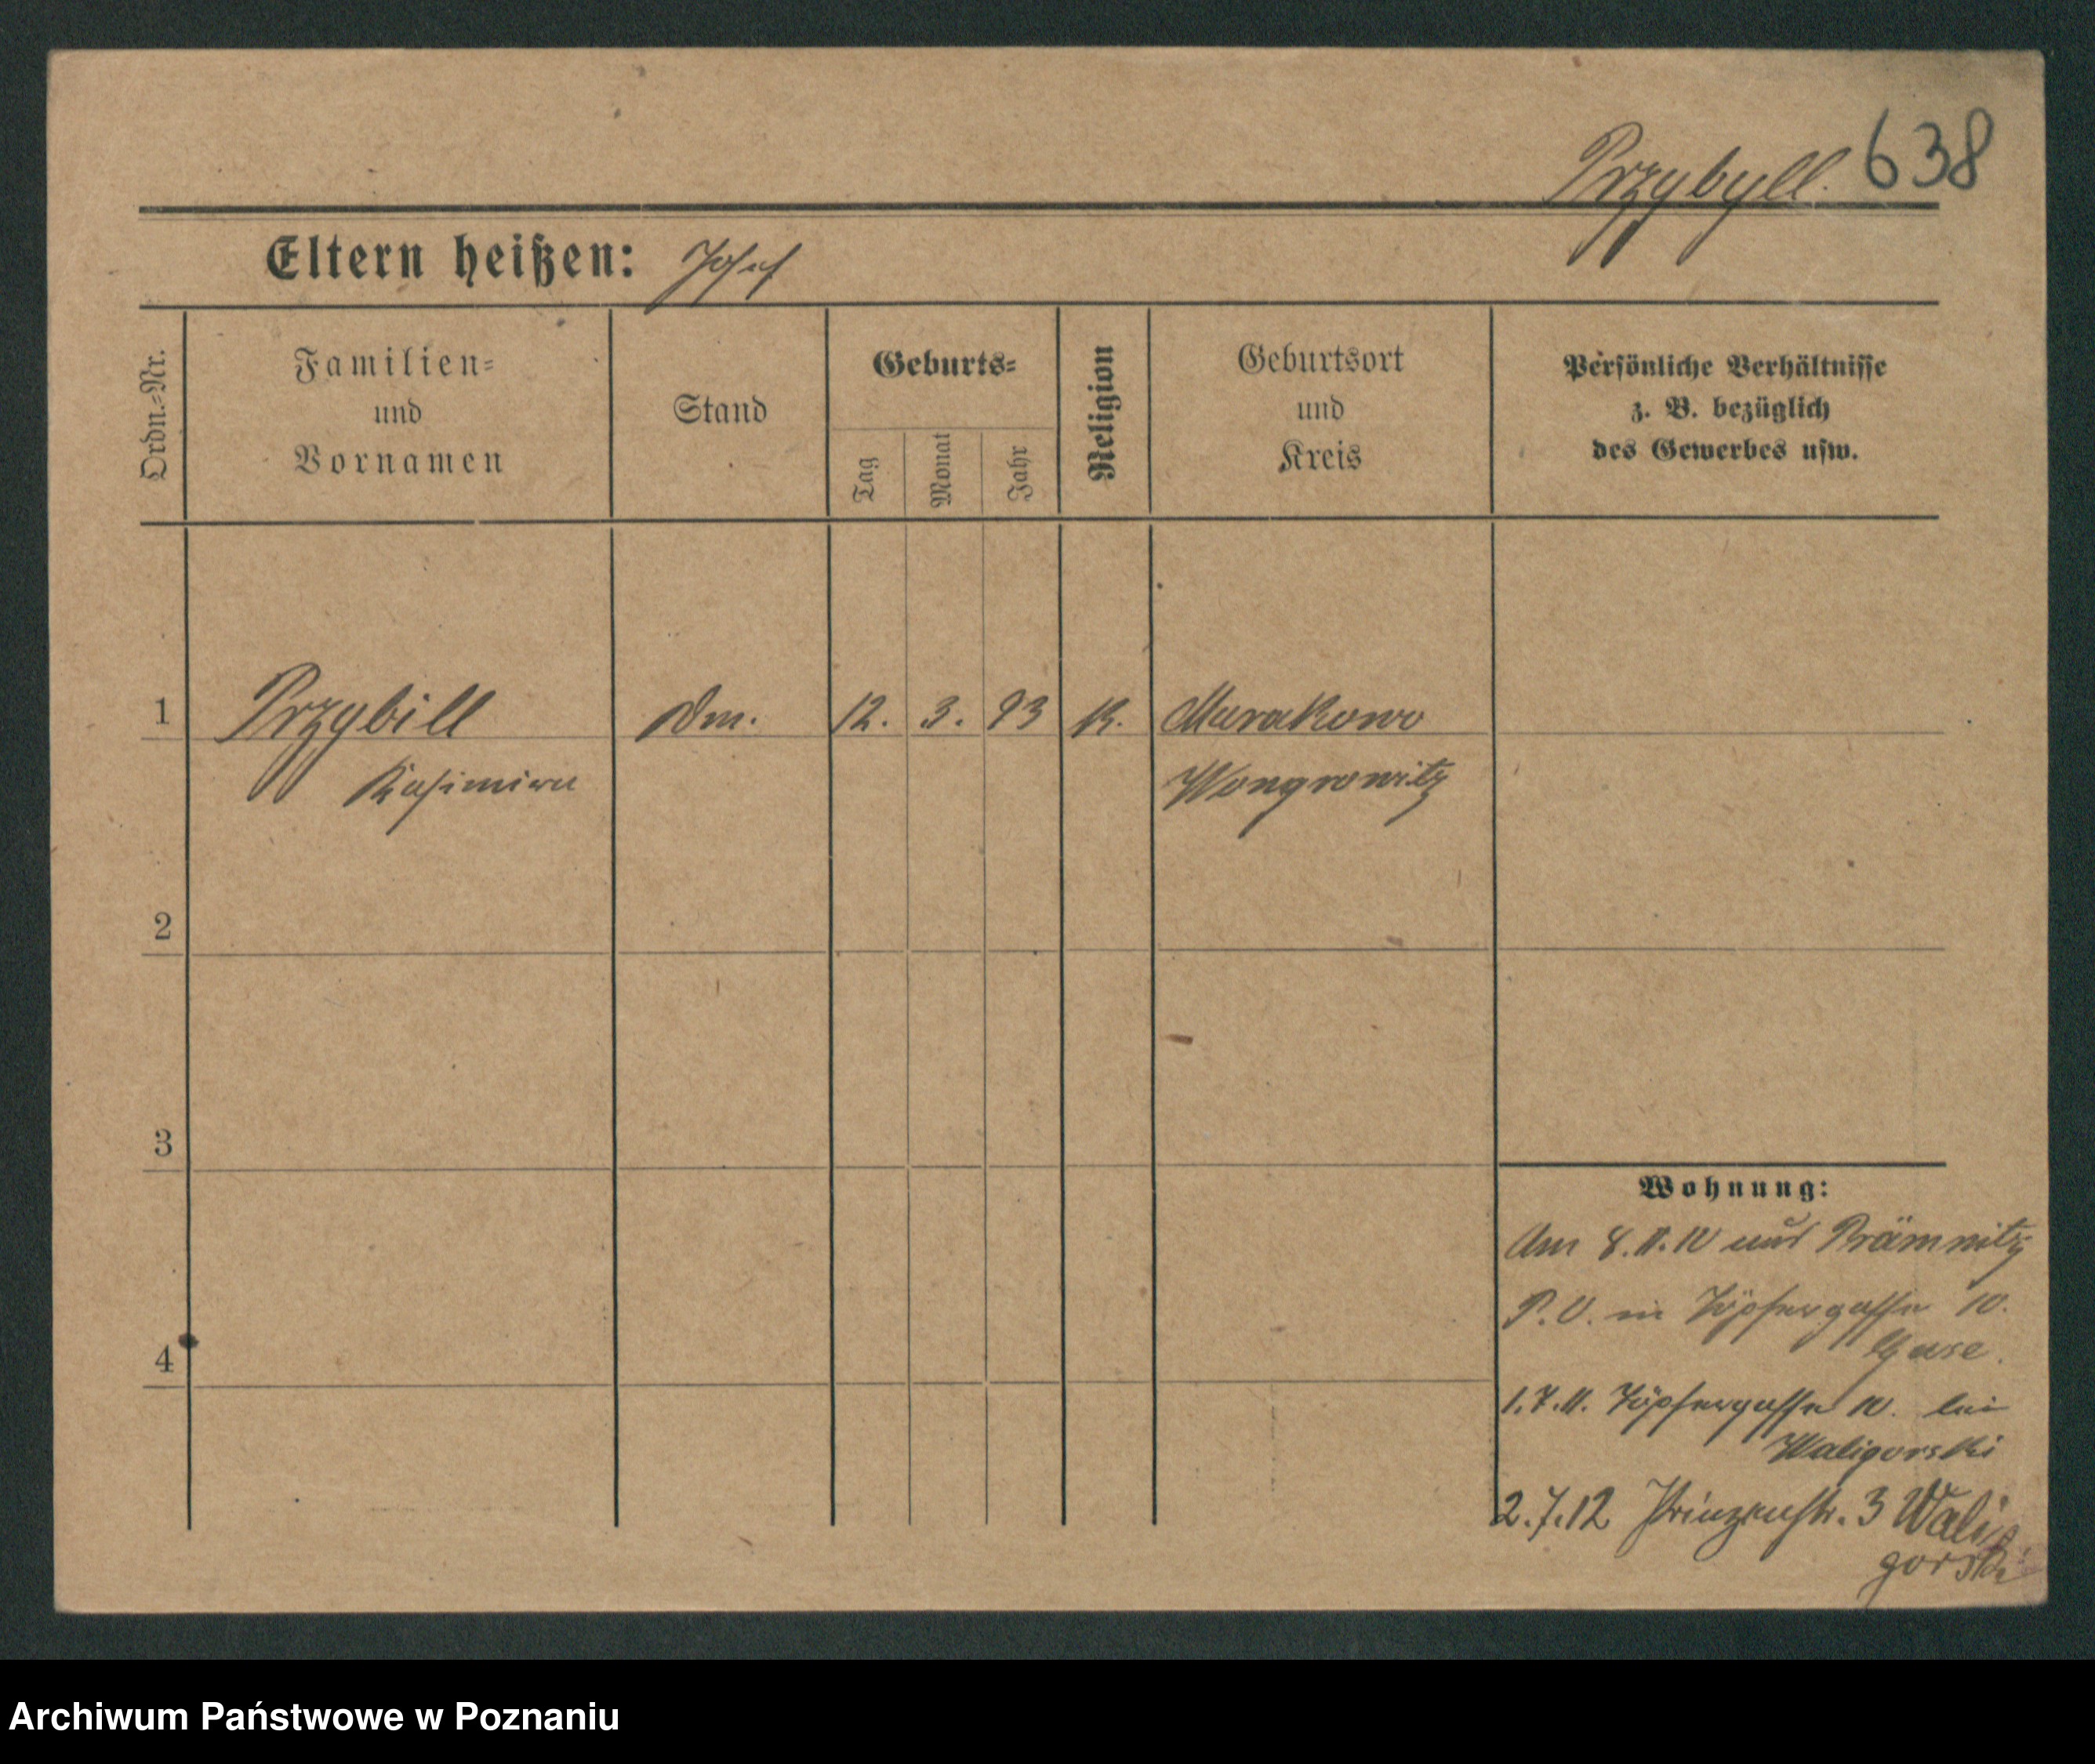 Przybyll. 638
Eltern heißen: Josef
Ordn.=Nr.
Familien=
und
Vornamen
Stand
Geburts=
Tag
Monat
Jahr
Religion
Geburtsort
und
Kreis
Persönliche Verhältnisse
z. B. bezüglich
des Gewerbes usw.
1 Przybill Dm. 12. 3. 93 K. Murakowo
Kasimira Wongrowitz
2
3
4
Wohnung:
Am 8.11.10 aus
P.O. in Töpfergasse 10.
1.7.11. Töpfergasse 10. bei
Waligorski
2.7.12 Prinzenstr. 3 Wali
gorski
Archiwum Państwowe w Poznaniu